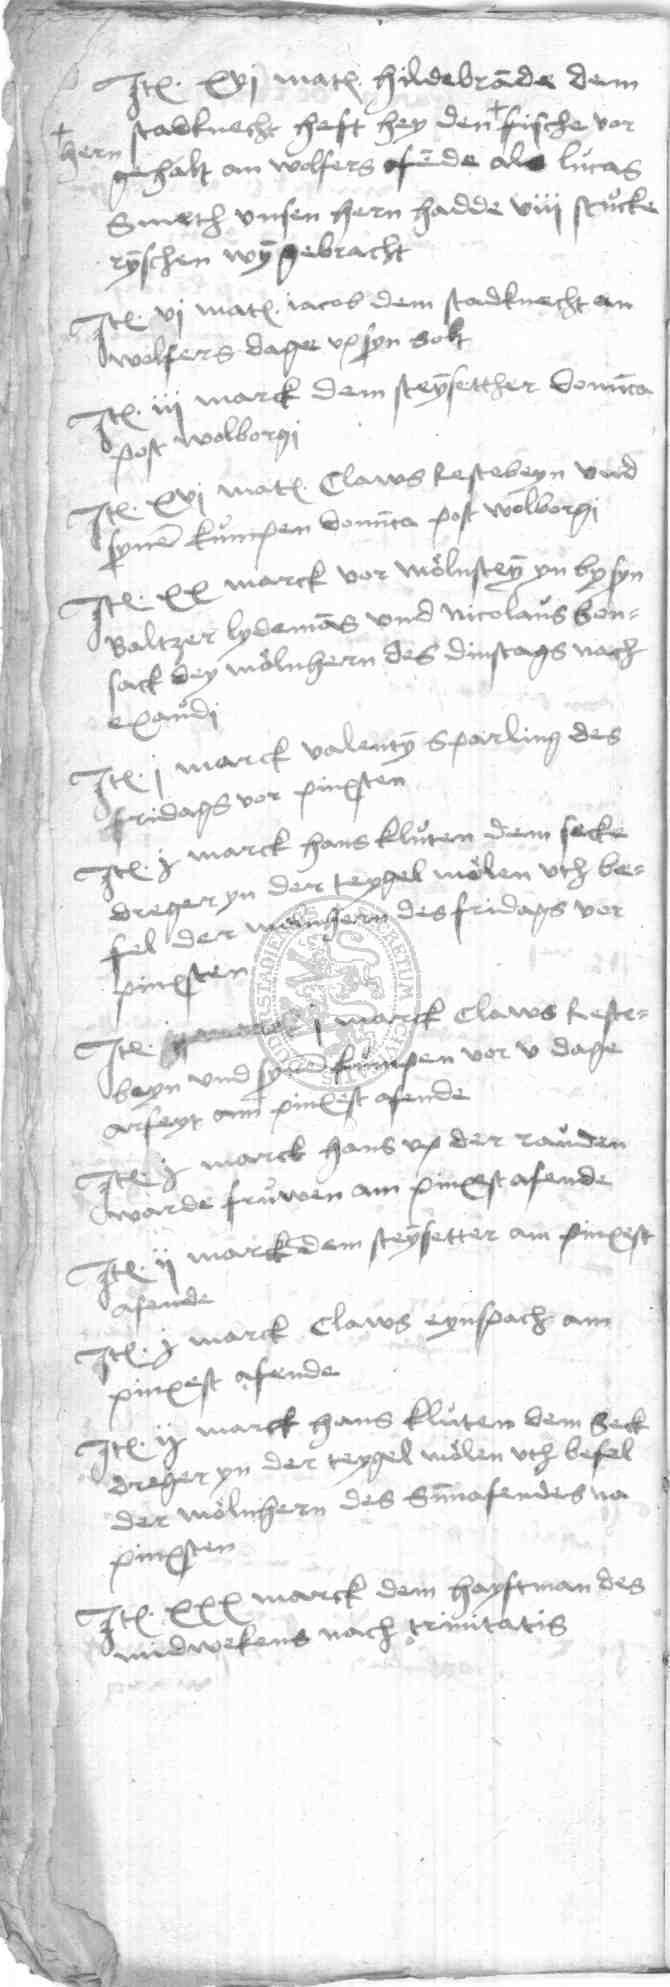 Itē. xvj mark. hildebrāde dem
stadknecht heft hey den + fische vor
+ hern
gehalt an wolfers afēde als lucas
Smeth vnsen hern hadde viii stucke
rȳschen wȳ gebracht
Itē. vj mark. iacob dem stadknecht an
wolfers dage vp syn solt
Itē. iij marck dem steȳsetther domīca
post wolborgi
Itē. xvj mark. Claws kestebeyn vnd
synē kumpen domīca post wolborgi
Itē. xx marck vor mölnsteȳ yn by syn
Baltzer lydemās vnd nicolaus Bon=
sack dey mölnhern des dinstags nach
exaudi
Itē. j marck valentȳ Sparling des
fridags vor pinxsten
Itē. j marck hans kluten dem secke
dreger yn der teygel mölen vth be=
fel der mölnhern des fridags vor
pinxsten
Itē. j marck Claws keste=
beyn vnd synē kumpen vor v dage
arfeyt am pinxst afende
Itē. j marck hans vp der rauden
warde fruwen am pinxst afende
Itē. ij marck dem steȳsetter am pinxst
afende
Itē. j marck Claws eynspach am
pinxst afende
Itē. ij marck hans kluten dem Seck
dreger yn der teygel mölen vth befel
der mölnhern des Sūnafendes na
pinxsten
Itē. xxx marck dem hayftman des
midwekens nach trinitatis